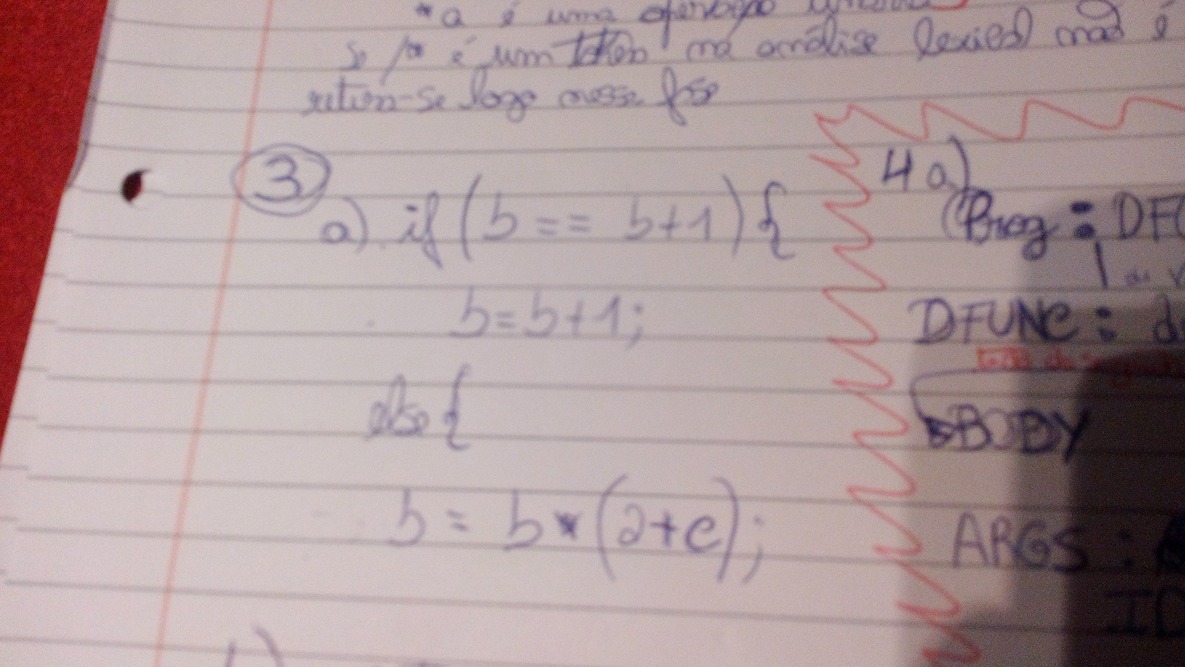 *a é uma operação
se /* é um token na análise lexical não é
retira-se logo nessa fase
3
a) if (b == b+1) {
b=b+1;
else {
b = b * (2+c);
4 a)
(Prog : DF
|
DFUNC : d
BODY
ARGS :
ID